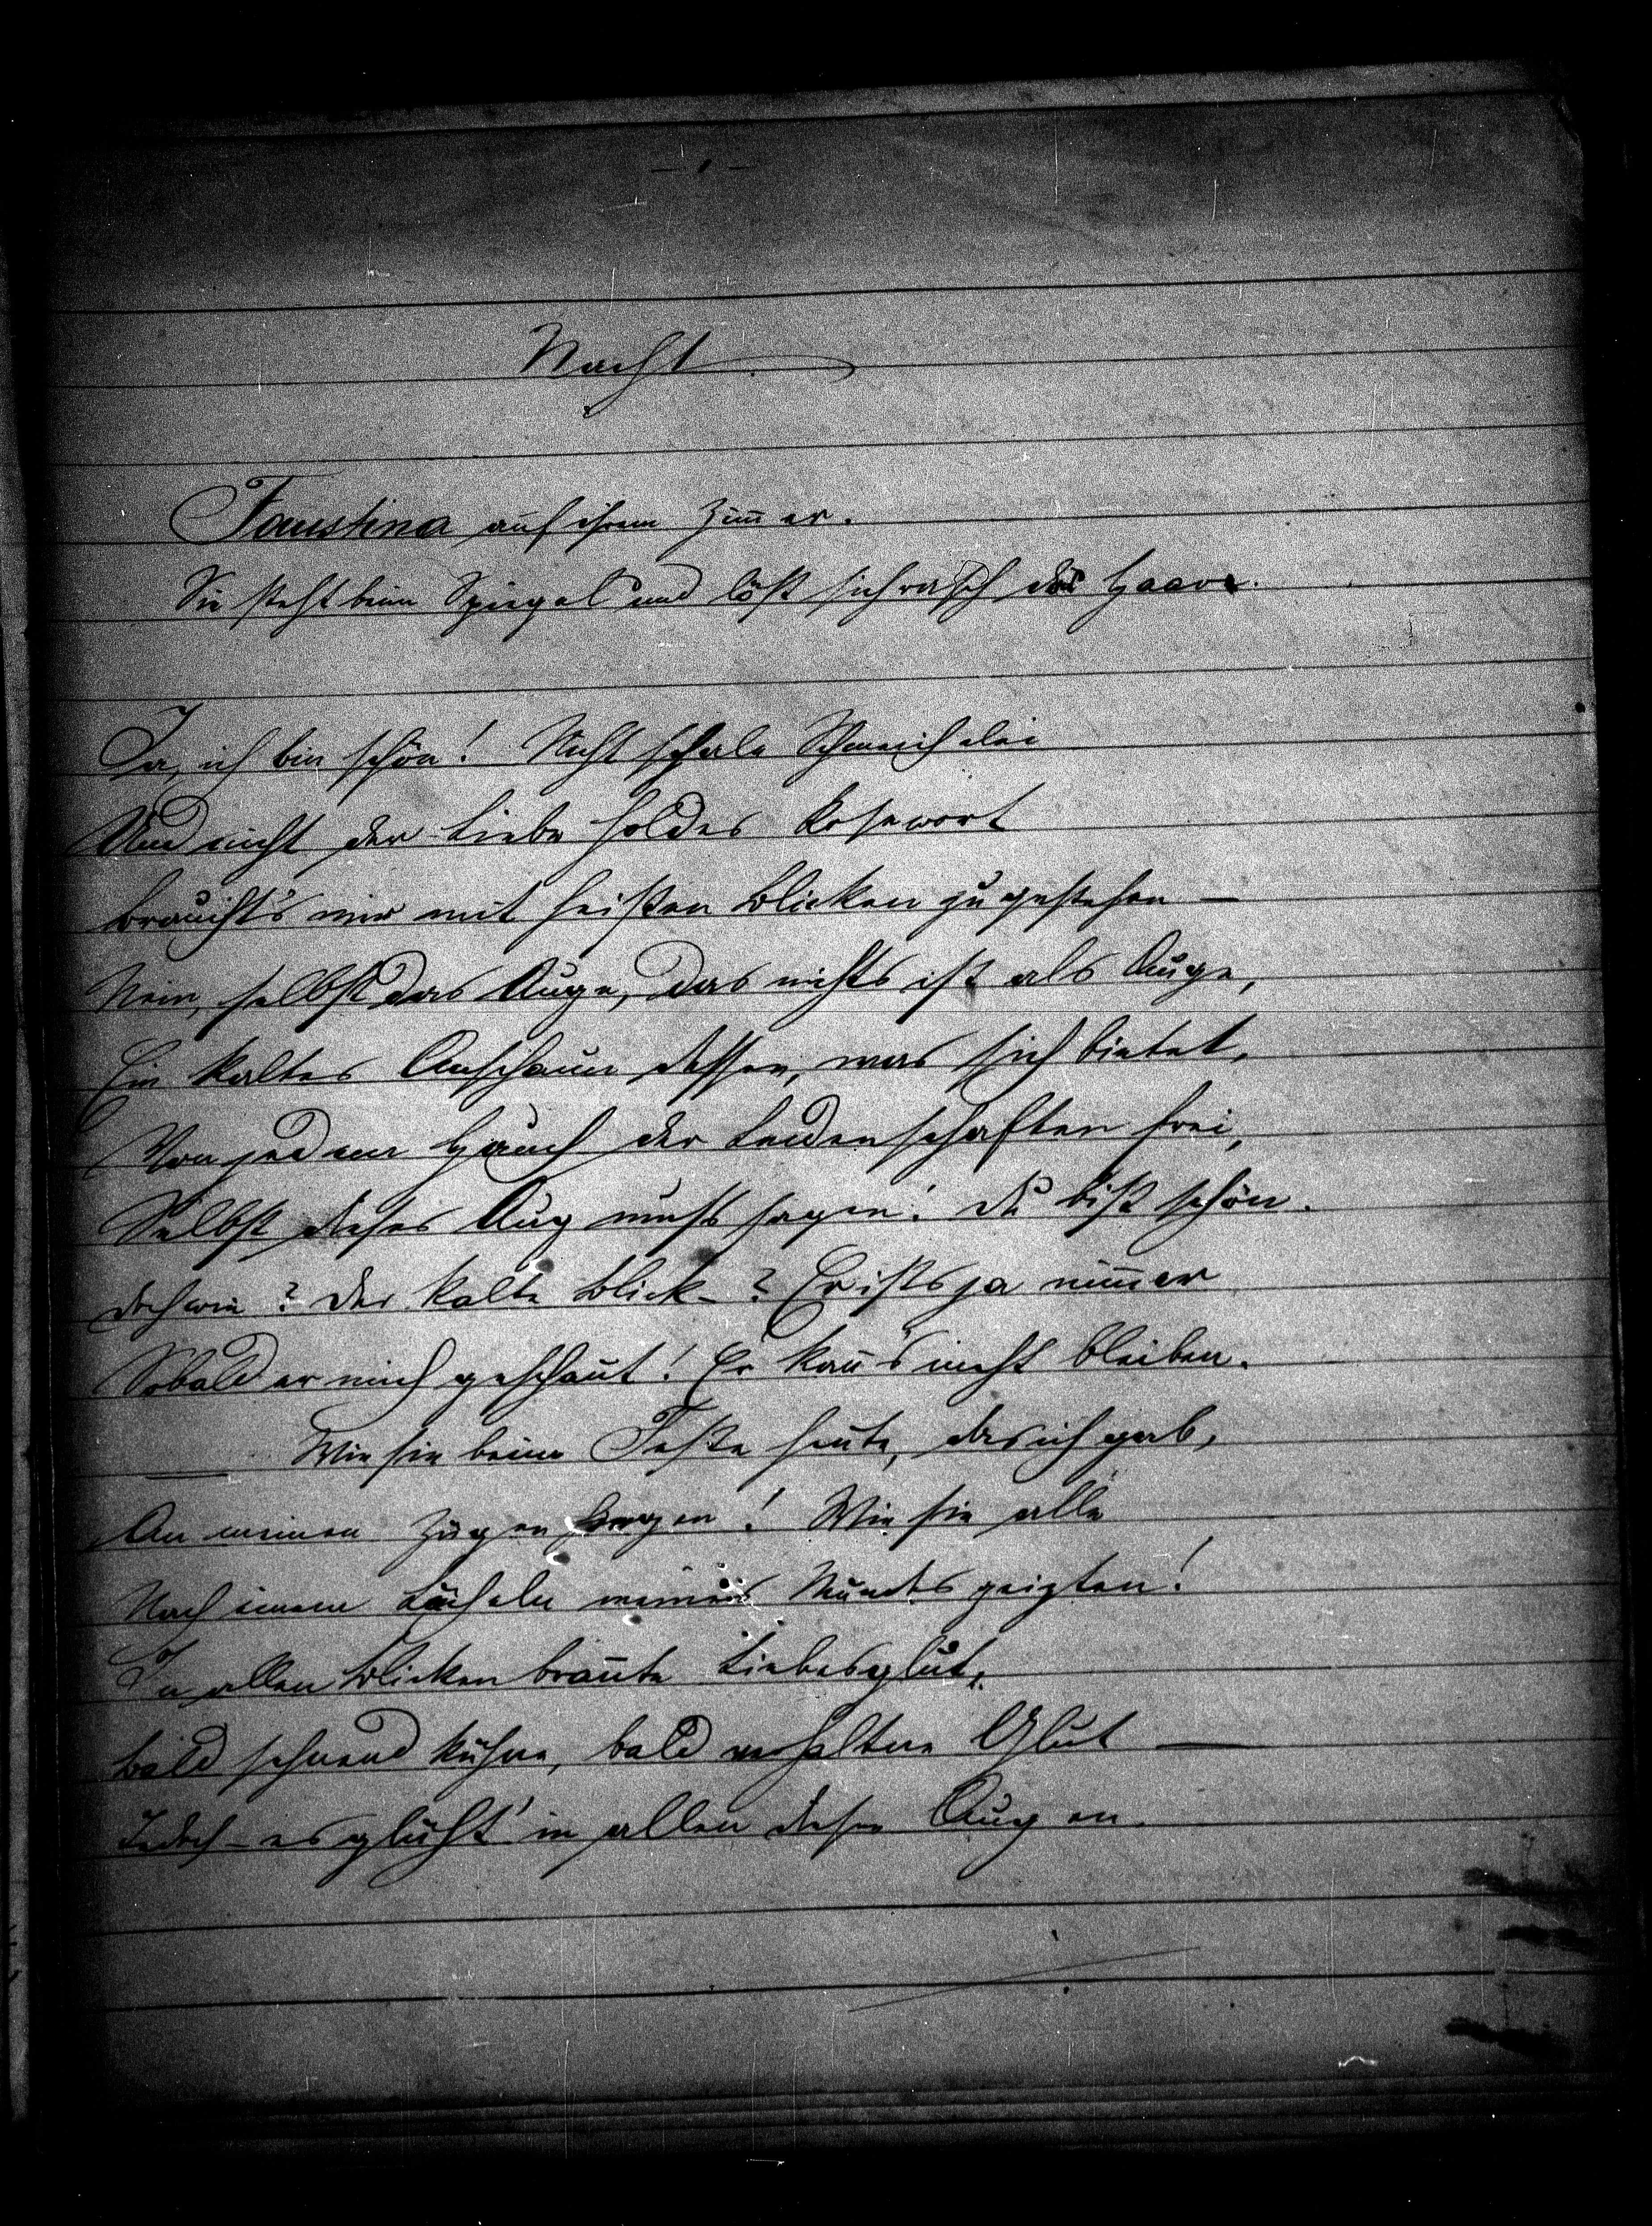 Nacht.
Faustina auf ihrem Zim̅er.
Sie steht beim Spiegel und löst sich rasch das Haar.
Ja, ich bin schön! Nicht schale Schmeichelei
Und nicht der Liebe holdes Kosewort
Braucht's mir mit heißen Blicken zu gestehen —
Nein, selbst das Auge, das nichts ist als Auge,
Ein kaltes Anschaun dessen, was sich bietet,
Von jedem Hauch der Leidenschaften frei,
Selbst dieses Aug muß sagen: du bist schön.
Doch wie? Der kalte Blick–? Er ists ja nim̅er
Sobald er mich geschaut! Er kan̅'s nicht bleiben.
— Wie sie beim Feste heute, das ich gab,
An meinen Zügen hingen! Wie sie alle
Nach einem Lächeln meines Mundes geizten!
In allen Blicken bran̅te Liebesglut,
Bald sehnend kühne, bald verhaltne Glut —
Jedoch – es glüht' in allen diesen Augen.